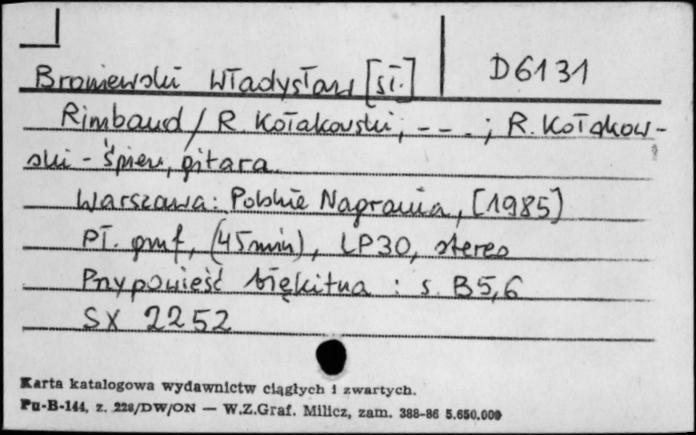 Broniewski Władysław [sł.]
D6131
Rimbaud / R. Kołakowski, - - - ; R. Kołakow-
ski - śpiew, gitara.
Warszawa: Polskie Nagrania, [1985]
Pł. gmf, (45 min), LP30, stereo
Przypowieść błękitna : s. B5,6
SX 2252
Karta katalogowa wydawnictw ciągłych i zwartych.
Pu-B-144, z. 228/DW/ON — W.Z.Graf. Milicz, zam. 388-86 5.650.000